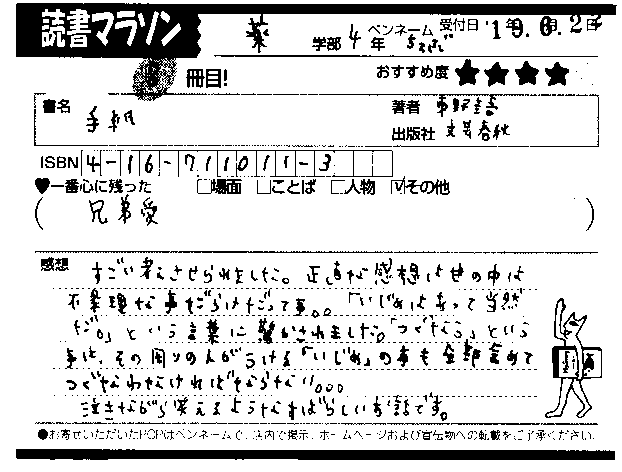 読書マラソン
薬 学部 4年 ペンネーム 受付日 '19年6月2日
冊目! おすすめ度 ★★★★
書名 手紙 著者 東野圭吾
出版社 文芸春秋
ISBN 4-16-711011-3
♥一番心に残った □場面 □ことば □人物 ☑その他
(兄弟愛)
感想 すごい考えさせられました。正直な感想は世の中は
不条理な事だらけだって事。。「いじめはあって当然
だ。」という言葉に驚かされました。「つぐなう」という
事は、その周りの人がうける「いじめ」の事も全部含めて
つぐなわなければならない。。。
泣きながら笑えるようなすばらしいお話です。
●お寄せいただいたPOPはペンネームで、店内で掲示、ホームページおよび宣伝物への転載をご了承ください。